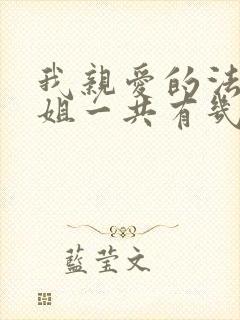 我親愛的法
姐一共有幾
藍莹文